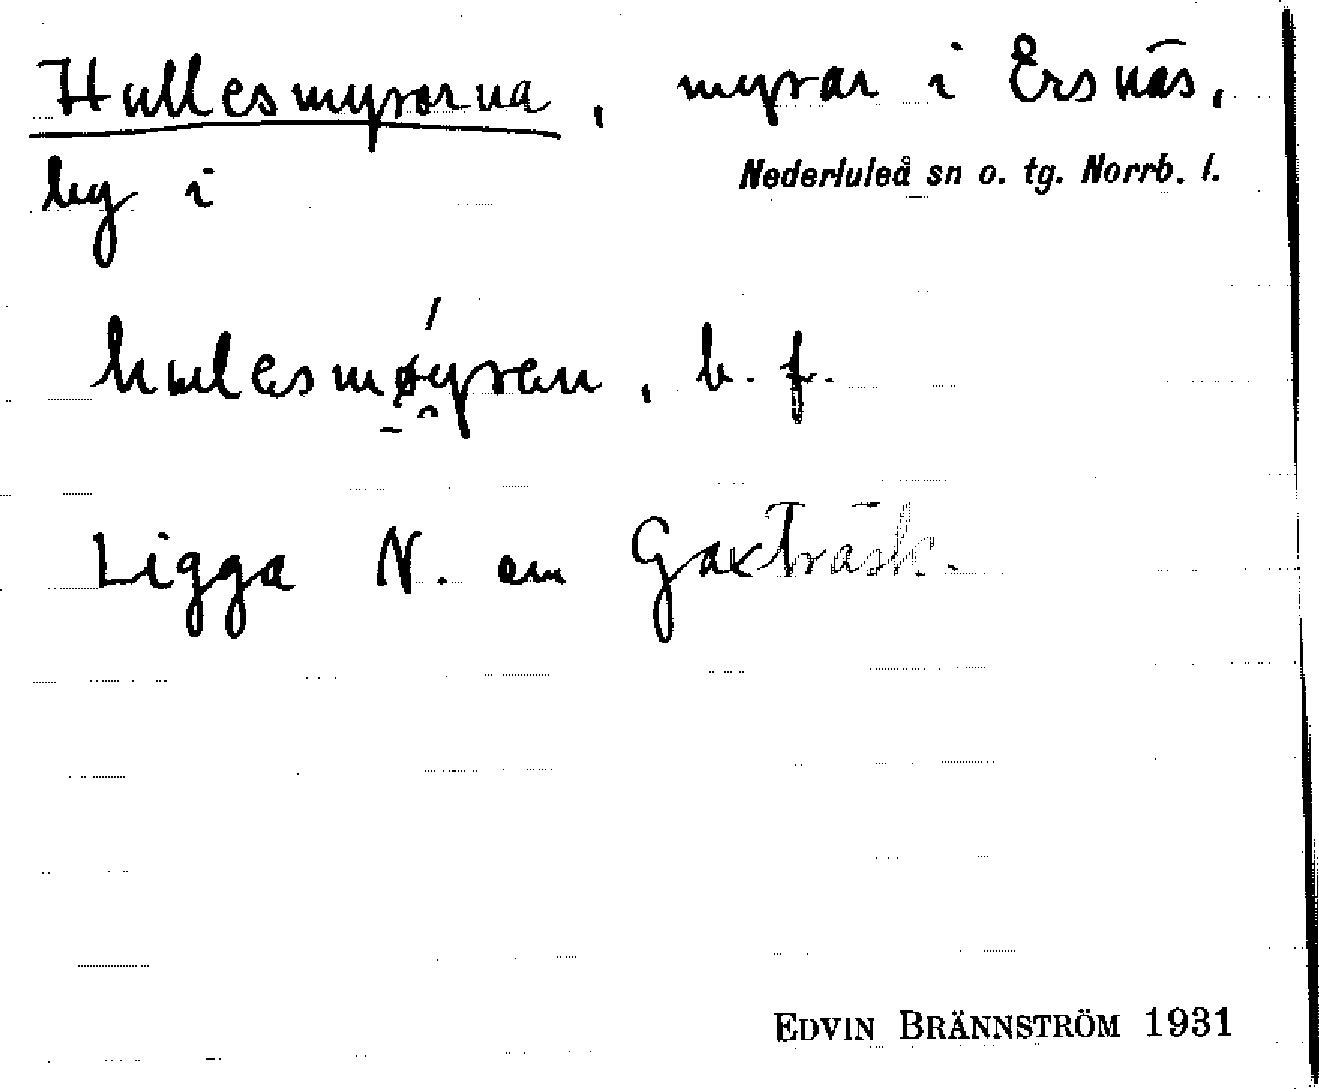 Hullesmyrorna, myrar i Ersnäs,
by i Nederluleå sn o. tg. Norrb. l.
hulesmøyren, b. f.
Ligga N. om Gaxträsk.
EDVIN BRÄNNSTRÖM 1931